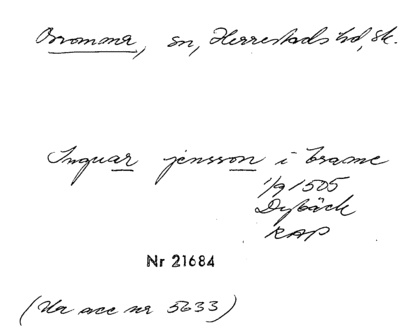 Bromma, sn, Herrestads hd, Sk.
Inguar jensson i brame
1/9 1505
Dybäck
RAP
Nr 21684
(Ur acc nr 5633)